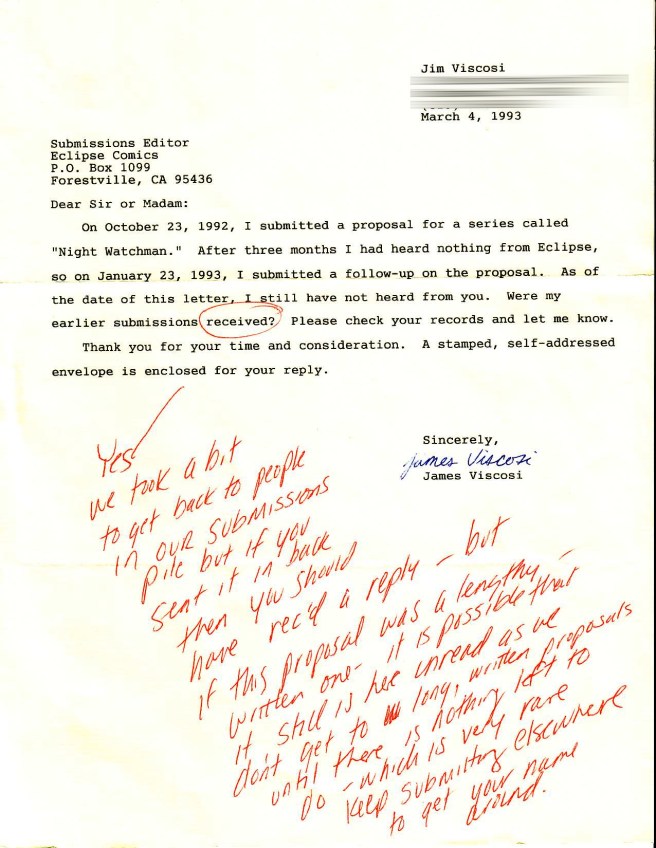 Jim Viscosi
March 4, 1993
Submissions Editor
Eclipse Comics
P.O. Box 1099
Forestville, CA 95436
Dear Sir or Madam:
On October 23, 1992, I submitted a proposal for a series called
"Night Watchman." After three months I had heard nothing from Eclipse,
so on January 23, 1993, I submitted a follow-up on the proposal. As of
the date of this letter, I still have not heard from you. Were my
earlier submissions received? Please check your records and let me know.
Thank you for your time and consideration. A stamped, self-addressed
envelope is enclosed for your reply.
Sincerely,
James Viscosi
James Viscosi
Yes
we took a bit
to get back to people
in our submissions
pile but if you
sent it in back
then you should
have rec'd a reply - but
if this proposal was a lengthy -
written one - it is possible that
it still is here unread as we
don't get to long, written proposals
until there is nothing left to
do - which is very rare
Keep submitting elsewhere
to get your name
around.